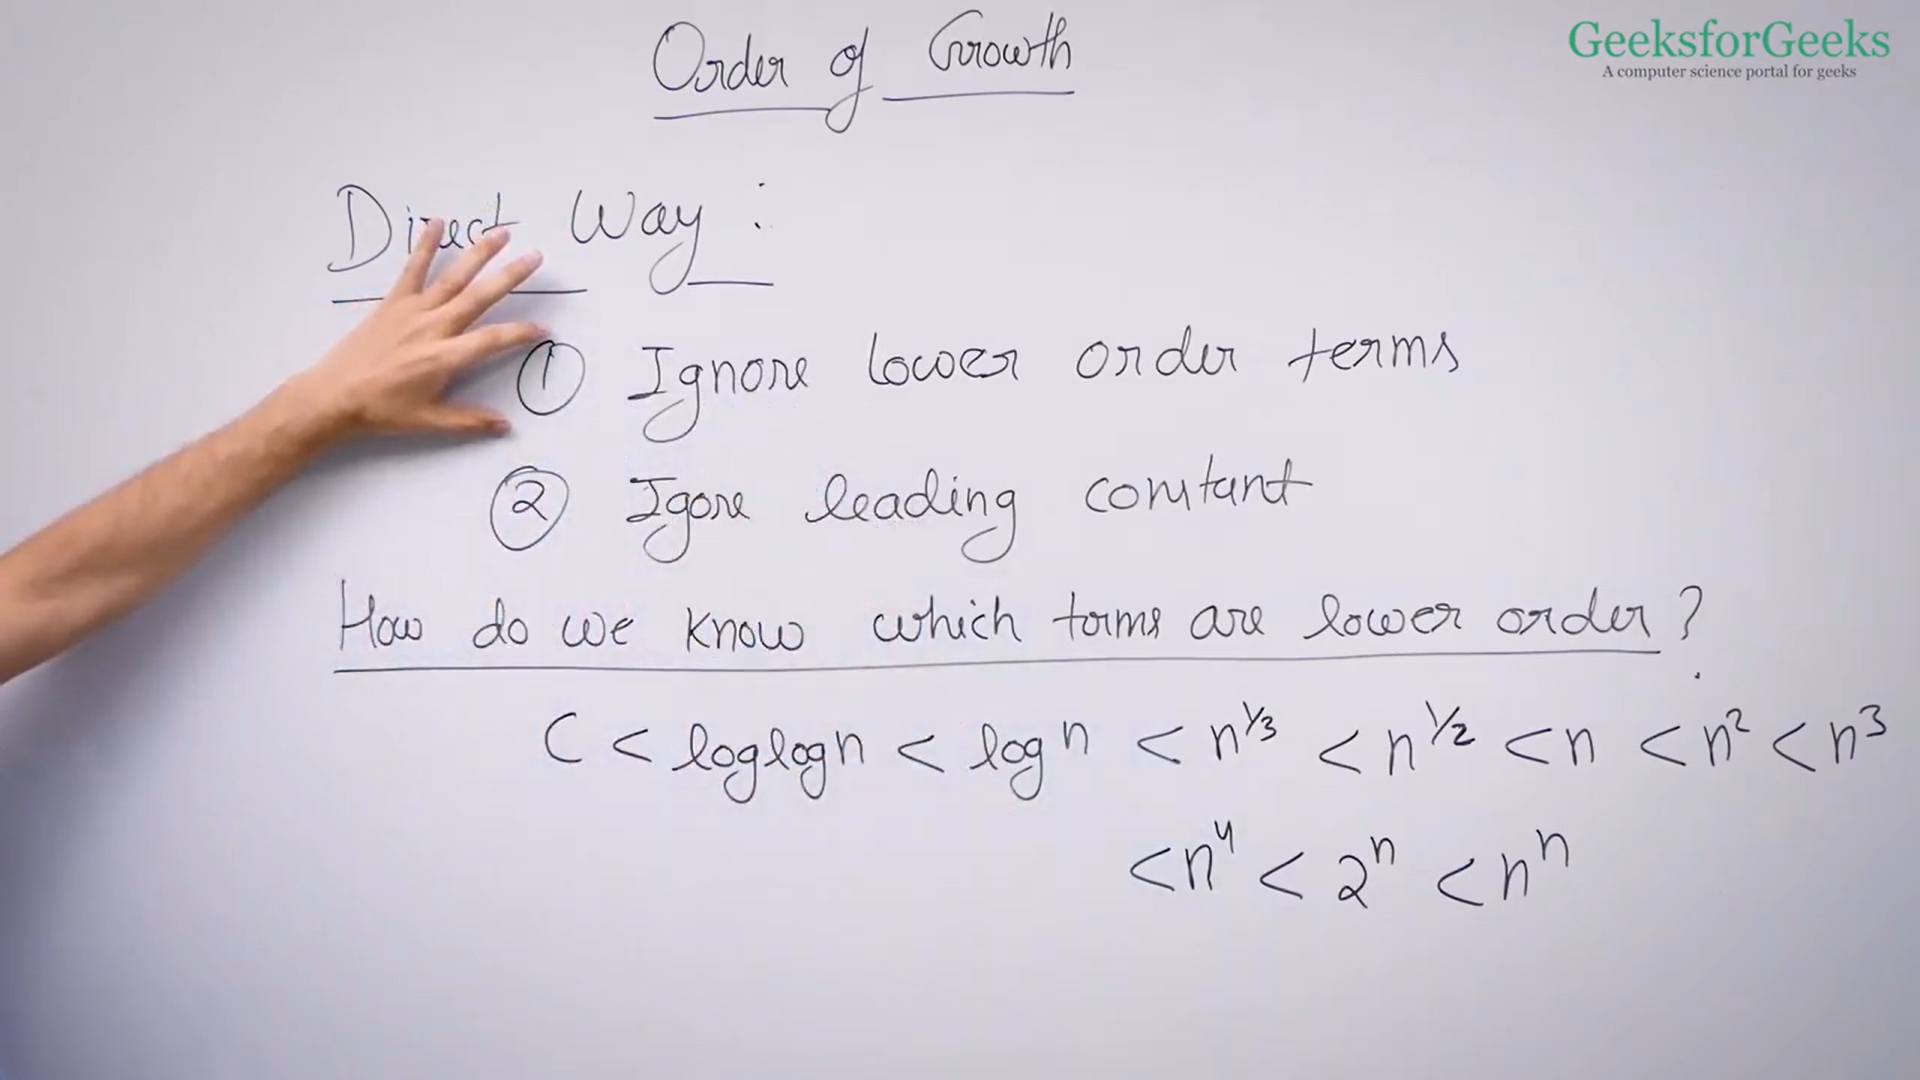 Order of Growth
GeeksforGeeks
A computer science portal for geeks
Direct Way :
① Ignore lower order terms
② Igore leading constant
How do we know which terms are lower order ?
C < loglogn < log n < n^1/3 < n^1/2 < n < n^2 < n^3
< n^4 < 2^n < n^n